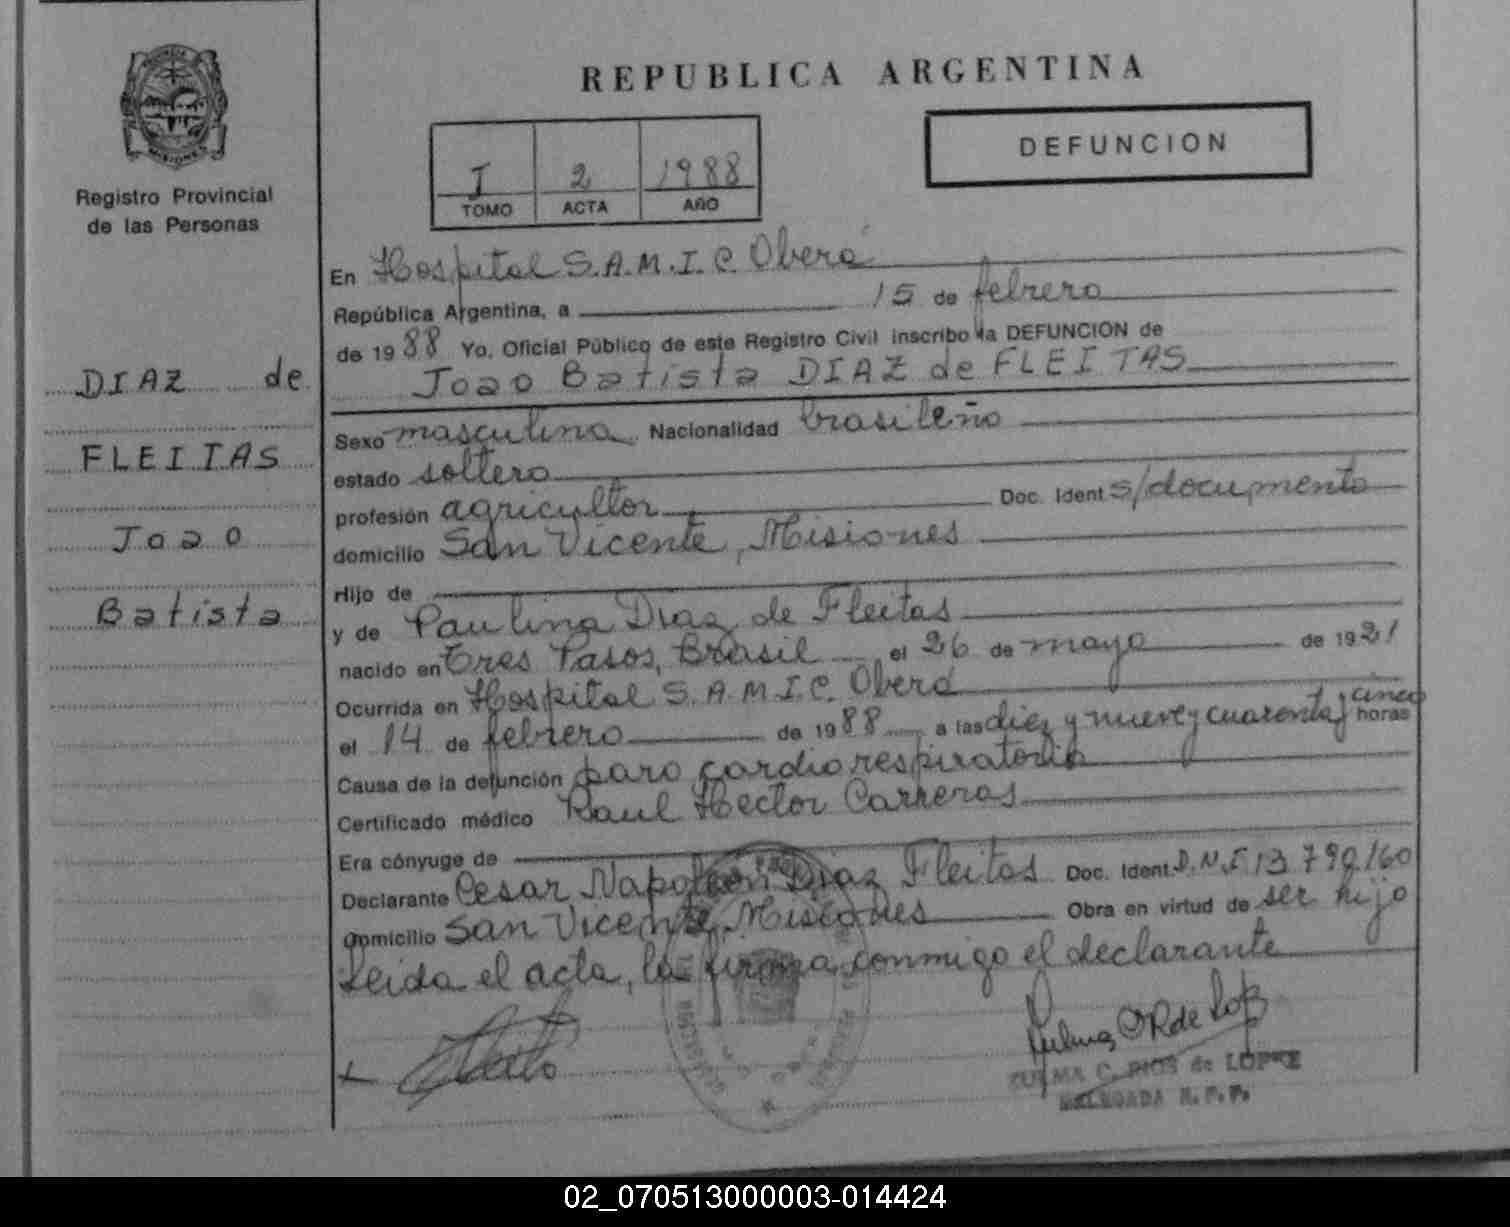 REPUBLICA ARGENTINA
MISIONES
Registro Provincial
de las Personas
I 2 1988
TOMO ACTA AÑO
DEFUNCION
DIAZ de
FLEITAS
Joao
Batista
En Hospital S.A.M.I.C. Oberá
República Argentina, a 15 de febrero
de 1988 Yo, Oficial Público de este Registro Civil inscribo la DEFUNCION de
Joao Batista DIAZ de FLEITAS
Sexo masculino Nacionalidad brasileño
estado soltero
profesión agricultor Doc. Ident s/documento
domicilio San Vicente, Misiones
Hijo de
y de Paulina Diaz de Fleitas
nacido en Tres Pasos, Brasil el 26 de mayo de 1921
Ocurrida en Hospital S.A.M.I.C. Oberá
el 14 de febrero de 1988 a las diez y nueve y cuarenta y cinco horas
Causa de la defunción paro cardiorespiratorio
Certificado médico Raul Hector Carreras
Era cónyuge de
Declarante Cesar Napoleón Diaz Fleitas Doc. Ident D.N.I 13.790.160
Domicilio San Vicente, Misiones Obra en virtud de ser hijo
Leida el acta, la firma conmigo el declarante
ZULMA C. RIOS de LOPEZ
DELEGADA R.P.P.
02_070513000003-014424